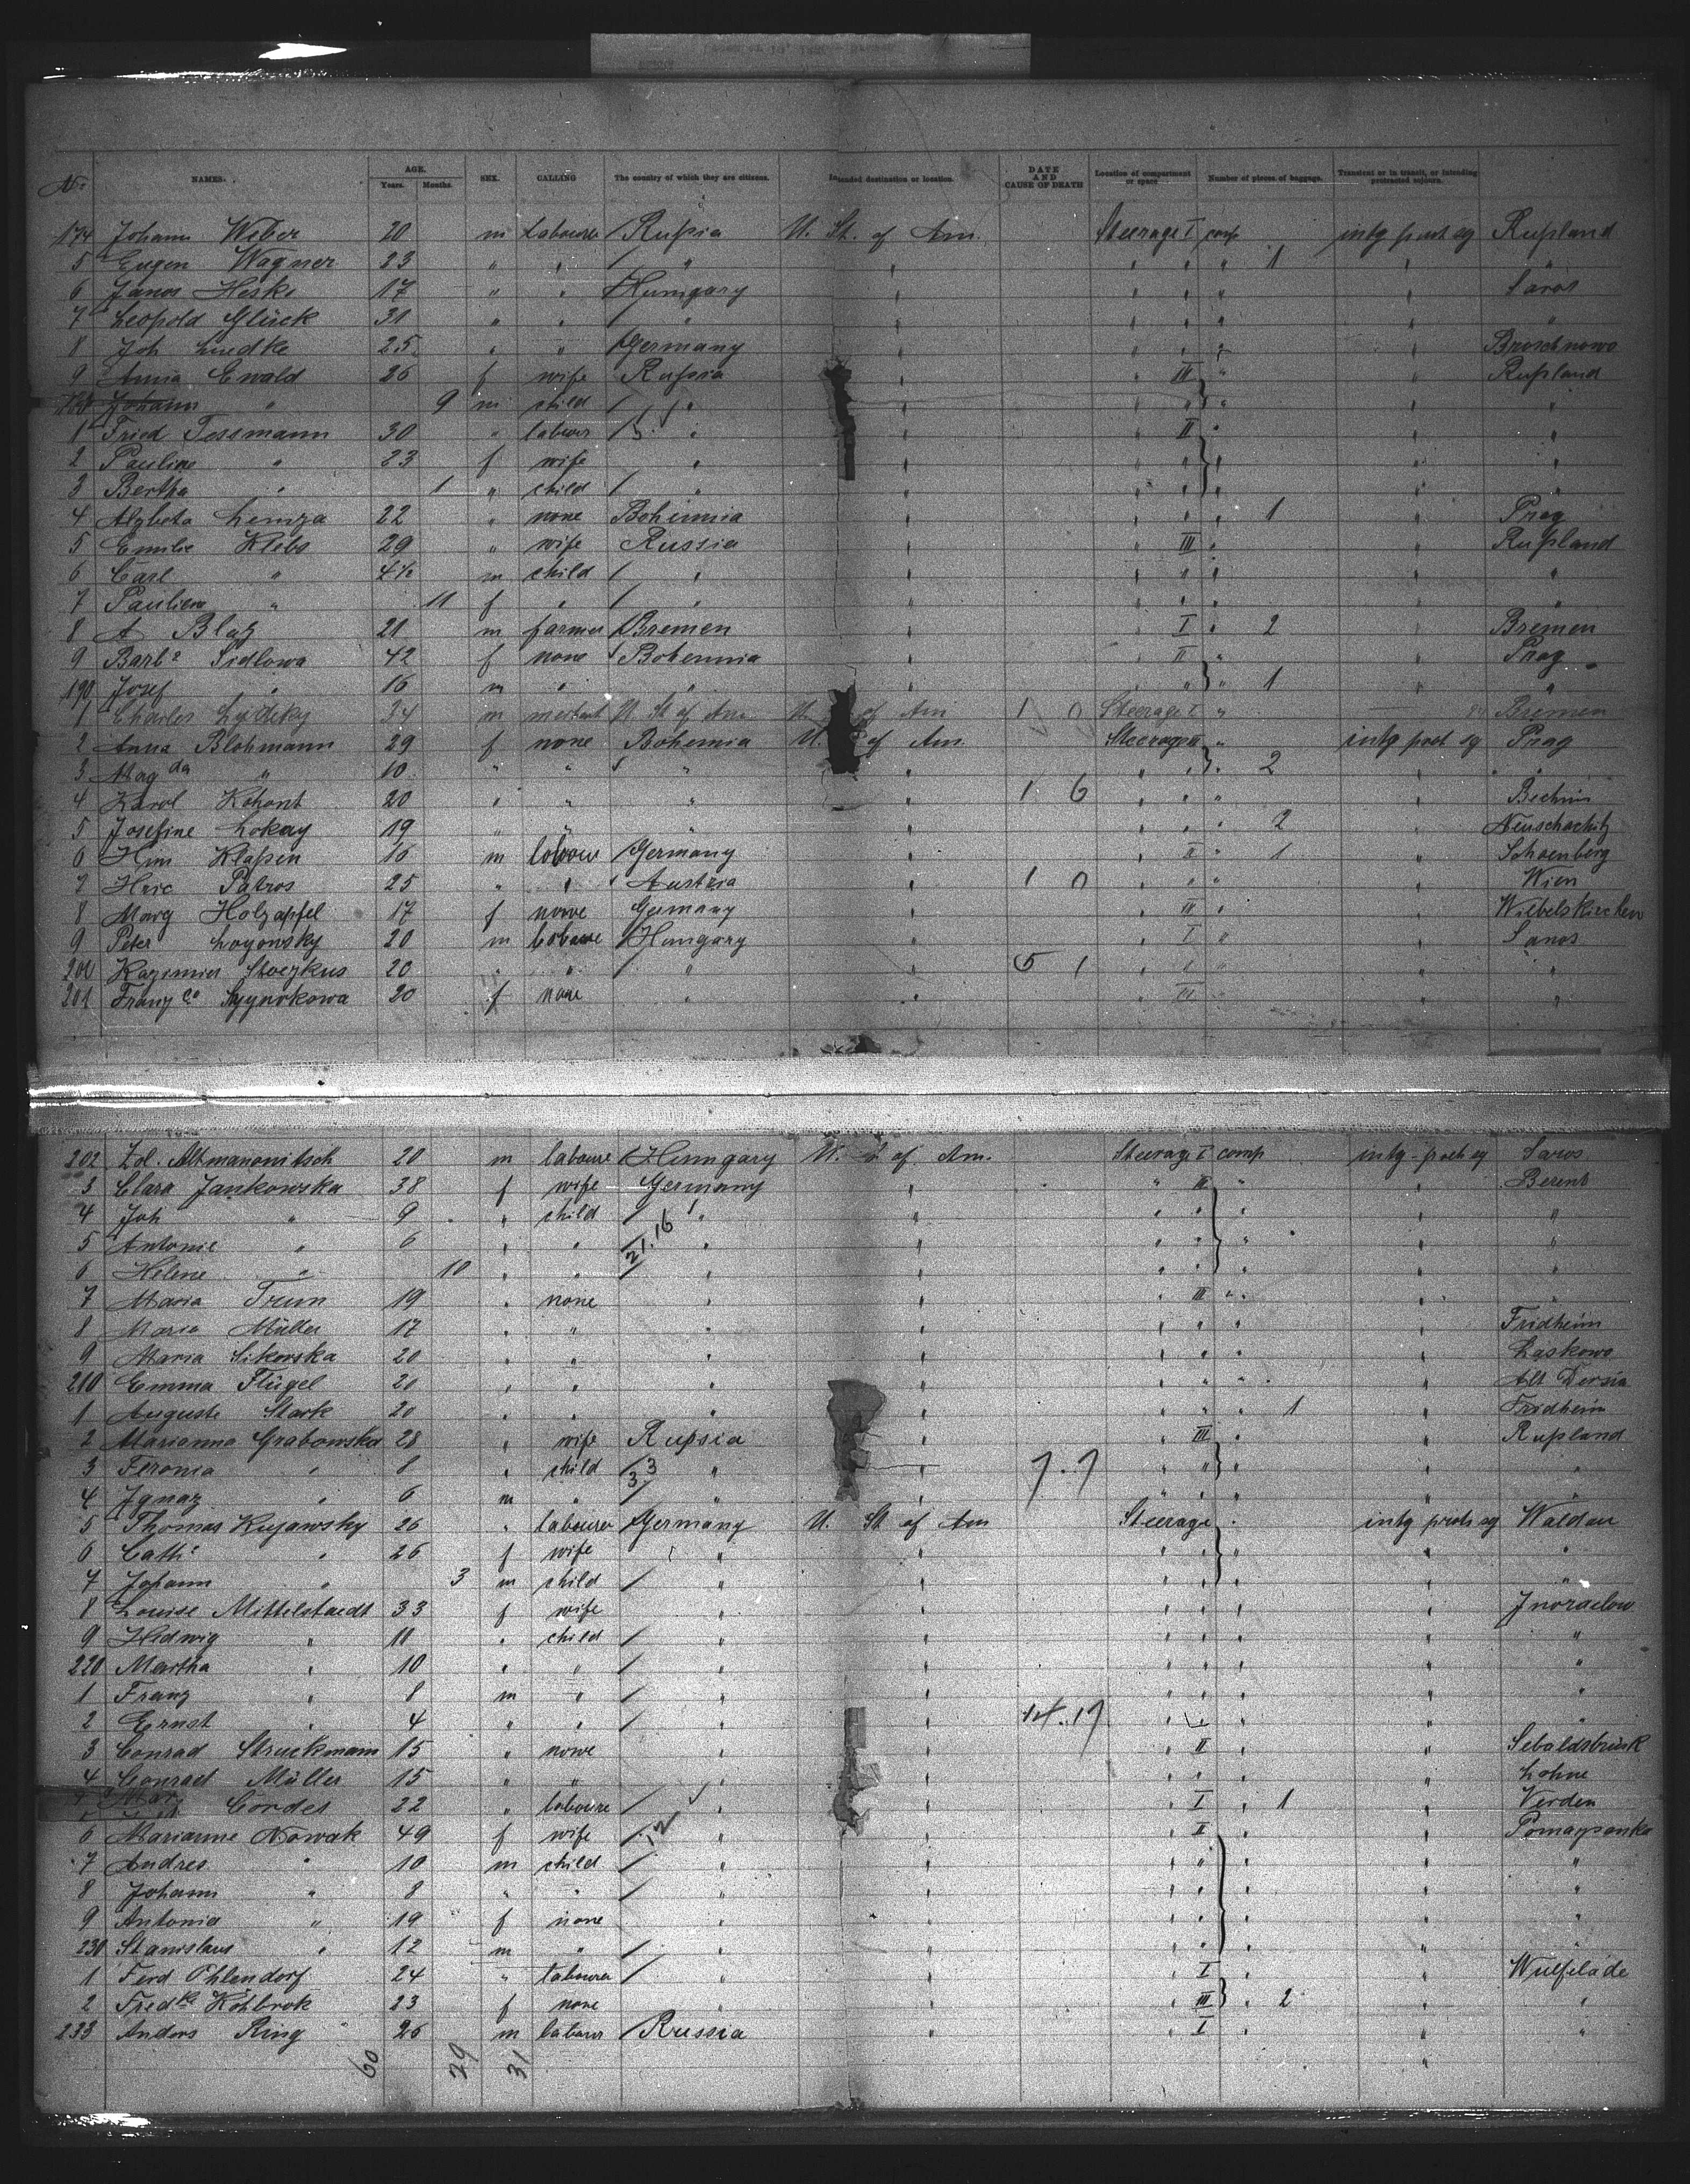 No NAMES. AGE. Years. Months. SEX. CALLING The country of which they are citizens. Intended destination or location. DATE AND CAUSE OF DEATH Location of compartment or space Number of pieces of baggage. Transient or in transit, or intending protracted sojourn.
174 Johann Weber 20 m Labourer Rußia U. St. of Am. Steerage I comp intg prot sg Rußland
5 Eugen Wagner 23 " " " 1
6 Janos Heske 17 " " Hungary Saros
7 Leopold Glück 31 " " "
8 Joh Luedke 25 " " Germany Broschnowo
9 Anna Ewald 26 f wife Rußia III " Rußland
180 Johann " 9 m child "
1 Fried Tessmann 30 " labour " II
2 Pauline " 23 f wife "
3 Bertha " 1 " child "
4 Alzbeta Lemza 22 " none Bohemia 1 Prag
5 Emilie Klebs 29 " wife Russia III Rußland
6 Carl " 4½ m child "
7 Pauline " 11 f " "
8 A Blaz 21 m farmer Bremen I 2 Bremen
9 Barba Sidlowa 42 f none Bohemia II Prag
190 Josef " 16 m " " 1
1 Charles 34 m U. St of Am U. of Am 1 0 Steerage I " Bremen
2 Anna Blohmann 29 f none Bohemia U. of Am. Steerage II " intg prot sg Prag
3 Magda " 10 " " " 2
4 Karol Kohont 20 " " " 1 6 Bechin
5 Josefine Lokay 19 " " " 2
6 Hm Klaßen 16 m labour Germany II 1 Schoenberg
7 Patros 25 " " Austria 1 0 Wien
8 Marg Holzapfel 17 f none Germany III Wiebelskirchen
9 Peter Loyowsky 20 m labour Hungary I Saros
200 Kazimier Stoczkus 20 " " " 5 1
201 Franzca 20 f none " III
202 Altmanowitsch 20 m laboure Hungary U. St of Am. Steerage I comp intg prot sg Saros
3 Clara Jankowska 38 f wife Germany III " Berent
4 Joh " 9 " child "
5 Antonie " 6 " " 21.16 "
6 Helene " 10 " " "
7 Maria Trum 19 " none " III
8 Maria Müller 17 " " " Fridheim
9 Maria Sikorska 20 " " " Laskowo
210 Emma Flügel 20 " " "
1 Auguste Stark 20 " " " 1 Fridheim
2 Marianna Grabowska 28 " wife Rußia III Rußland
3 Feronia " 8 " child 3.3 " 7.7
4 Ignaz " 6 m " "
5 Thomas Kujawsky 26 " labourer Germany U. St of Am Steerage intg prot sg Waldau
6 Cathe " 26 f wife "
7 Johann " 3 m child "
8 Louise Mittelstaedt 33 f wife Inoraclow
9 Hedwig " 11 " child "
220 Martha " 10 " " "
1 Franz " 8 m " "
2 Ernst " 4 " " " 14.17
3 Conrad Struckmann 15 " none II Sebaldsbrück
4 Conrad Müller 15 " " " Lohne
5 Cordes 22 " laboure " I 1 Verden
6 Marianne Nowak 49 f wife 12 " II
7 Andres " 10 m child " "
8 Johann " 8 " " " "
9 Antonia " 19 f none " "
230 Stanislaus " 12 m " "
1 Ferd Ohlendorf 24 " labourer " I Wulfelade
2 Fredke Kohbrok 23 f none " III 2 "
233 Anders Ring 26 m labour Russia I "
60 29 31